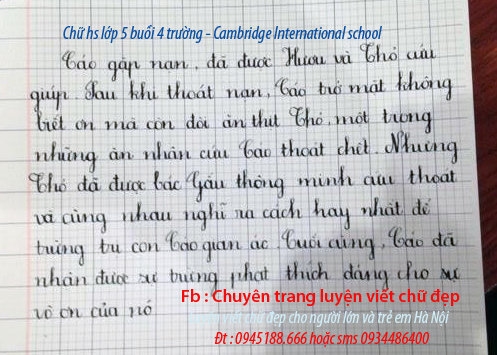 Chữ hs lớp 5 buổi 4 trường - Cambridge International school
Cáo gặp nạn, đã được Hươu và Thỏ cứu
giúp. Sau khi thoát nạn, Cáo trở mặt không
biết ơn mà còn đòi ăn thịt Thỏ, một trong
những ân nhân cứu Cáo thoát chết. Nhưng
Thỏ đã được bác Gấu thông minh cứu thoát
và cùng nhau nghĩ ra cách hay nhất để
trừng trị con Cáo gian ác. Cuối cùng, Cáo đã
nhận được sự trừng phạt thích đáng cho sự
vô ơn của nó
Fb : Chuyên trang luyện viết chữ đẹp
viết chữ đẹp cho người lớn và trẻ em Hà Nội
Đt : 0945188.666 hoặc sms 0934486400